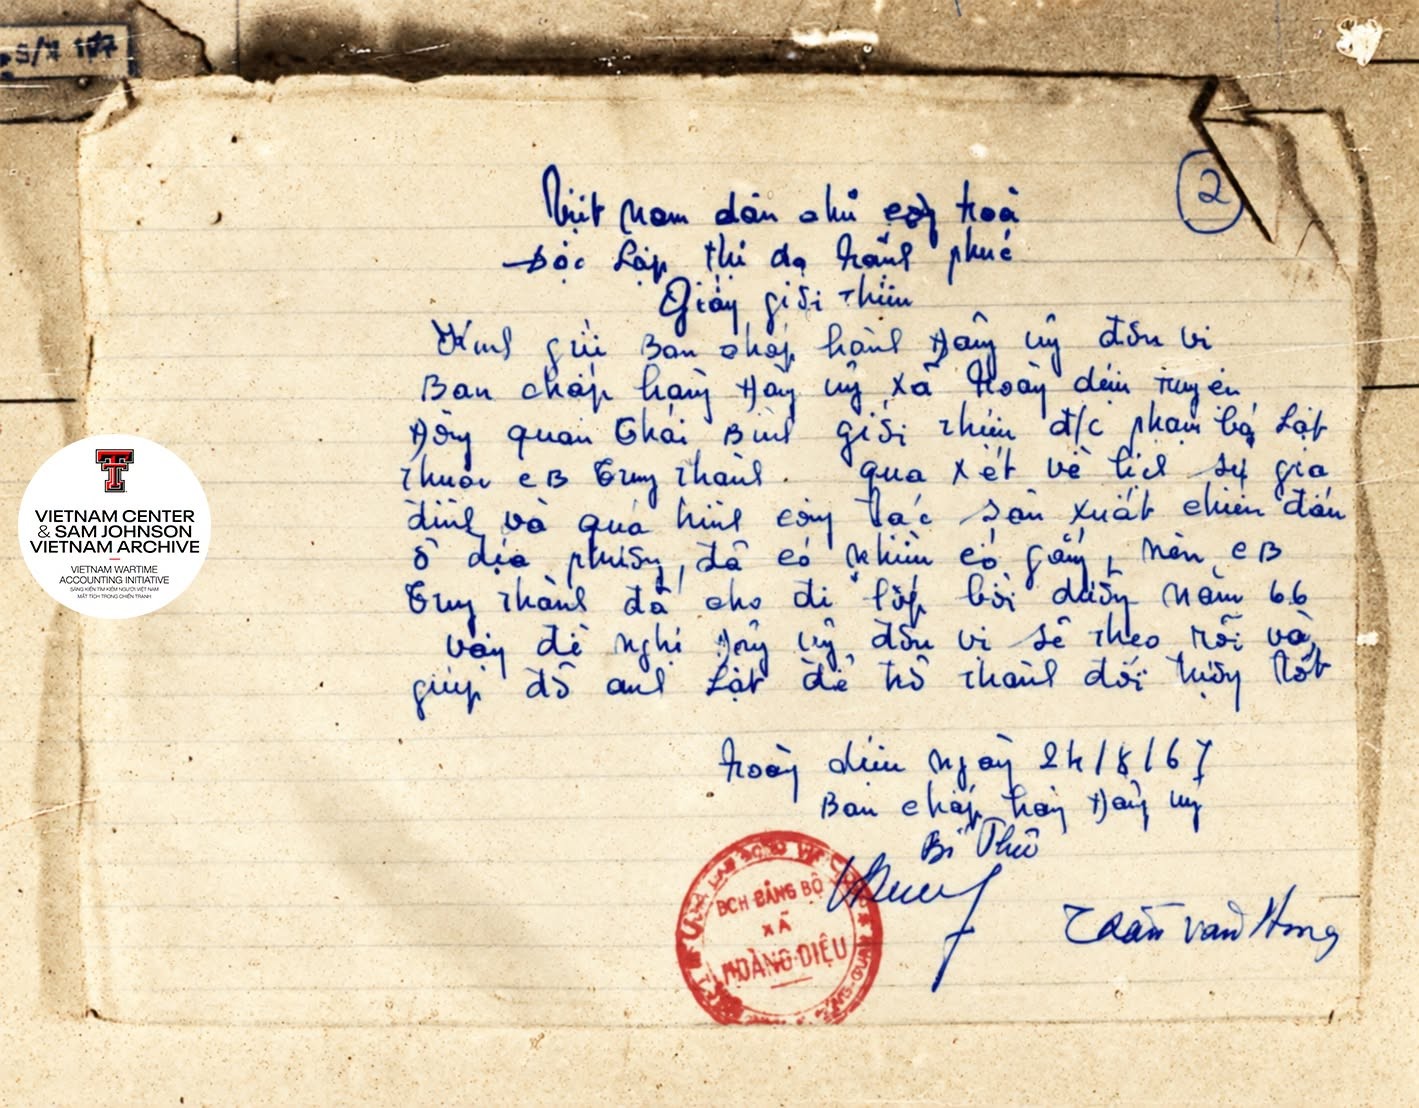 S/7 177
2
Việt Nam dân chủ cộng hoà
Độc lập tự do hạnh phúc
Giấy giới thiệu
Kính gửi Ban chấp hành Đảng uỷ đơn vị
Ban chấp hành Đảng uỷ xã Hoàng diệu huyện
Đông quan Thái Bình giới thiệu đ/c phạm bá Lật
thuộc CB Trung thành. qua xét về lịch sử gia
đình và quá trình công tác sản xuất chiến đấu
ở địa phương, đã có nhiều cố gắng, nên CB
Trung thành đã cho đi lớp bồi dưỡng năm 66
vậy đề nghị Đảng uỷ đơn vị sẽ theo rõi và
giúp đỡ anh Lật để trở thành đối tượng tốt
Hoàng diệu ngày 24/8/67
Ban chấp hành Đảng uỷ
Bí Thư
BCH ĐẢNG BỘ
XÃ
HOÀNG DIỆU
Trần văn
VIETNAM CENTER
& SAM JOHNSON
VIETNAM ARCHIVE
VIETNAM WARTIME
ACCOUNTING INITIATIVE
SÁNG KIẾN TÌM KIẾM NGƯỜI VIỆT NAM
MẤT TÍCH TRONG CHIẾN TRANH